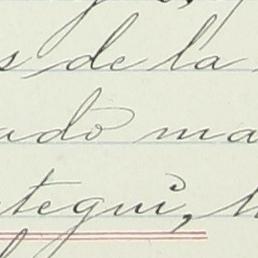 s de la
ado ma
tegui,